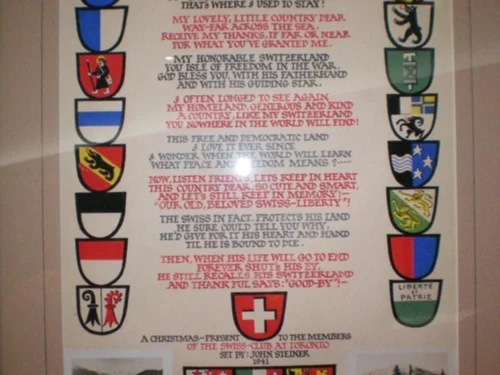 THAT'S WHERE I USED TO STAY!
MY LOVELY, LITTLE COUNTRY DEAR
WAY-FAR ACROSS THE SEA.
RECEIVE MY THANKS, IF FAR OR NEAR
FOR WHAT YOU'VE GRANTED ME.
MY HONORABLE SWITZERLAND
YOU ISLE OF FREEDOM IN THE WAR.
GOD BLESS YOU, WITH HIS FATHERHAND
AND WITH HIS GUIDING STAR.
I OFTEN LONGED TO SEE AGAIN
MY HOMELAND, GENEROUS AND KIND
A COUNTRY, LIKE MY SWITZERLAND
YOU NOWHERE IN THE WORLD WILL FIND!
THIS FREE AND DEMOCRATIC LAND
I LOVE IT EVER SINCE
I WONDER WHEN THE WORLD WILL LEARN
WHAT PEACE AND FREEDOM MEANS ?----
NOW, LISTEN FRIENDS, LETS KEEP IN HEART
THIS COUNTRY DEAR, SO CUTE AND SMART,
AND LET'S STILL KEEP IN MEMORY:-
"OUR OLD, BELOVED SWISS-LIBERTY"!
THE SWISS IN FACT, PROTECTS HIS LAND
HE SURE COULD TELL YOU WHY,
HE'D GIVE FOR IT HIS HEART AND HAND
TIL HE IS BOUND TO DIE.
THEN, WHEN HIS LIFE WILL GO TO END
FOREVER SHUTS HIS EY,
HE STILL RECALLS HIS SWITZERLAND
AND THANKFUL SAYS: "GOOD-BY"!-
LIBERTÉ
ET
PATRIE
A CHRISTMAS-PRESENT TO THE MEMBERS
OF THE SWISS-CLUB AT TORONTO
SET BY: JOHN STEINER
1941